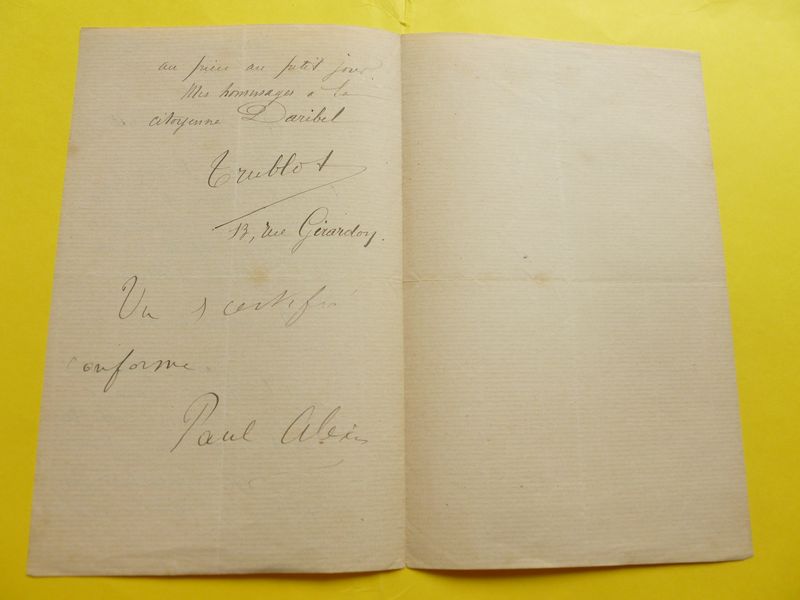 au pieu au petit jour.
Mes hommages à la
citoyenne Daribel
Trublot
13, rue Girardon.
Vu & certifié
conforme.
Paul Alexis